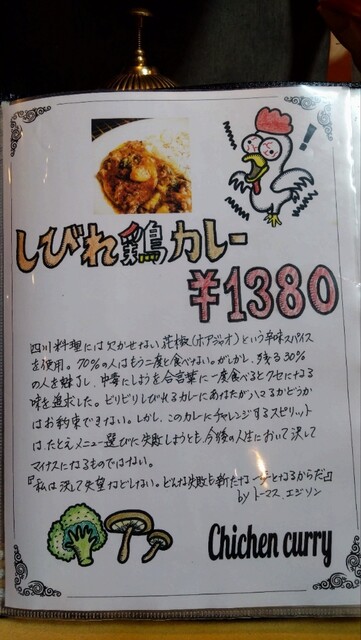 !
しびれ鶏カレー
¥1380
四川料理には欠かせない花椒(ホアジャオ)という辛味スパイス
を使用。70%の人はもう二度と食べない。がしかし、残る30%
の人を魅了し、中毒にしようを合言葉に一度食べるとクセになる
味を追求した。ビリビリしびれるカレーにあなたがハマるかどうか
はお約束できない。しかし、このカレーにチャレンジするスピリット
は、たとえメニュー選びに失敗しようとも、今後の人生において決して
マイナスになるものではない。
『私は決して失望などしない。どんな失敗も新たな一歩となるからだ』
by トーマス、エジソン
Chichen curry